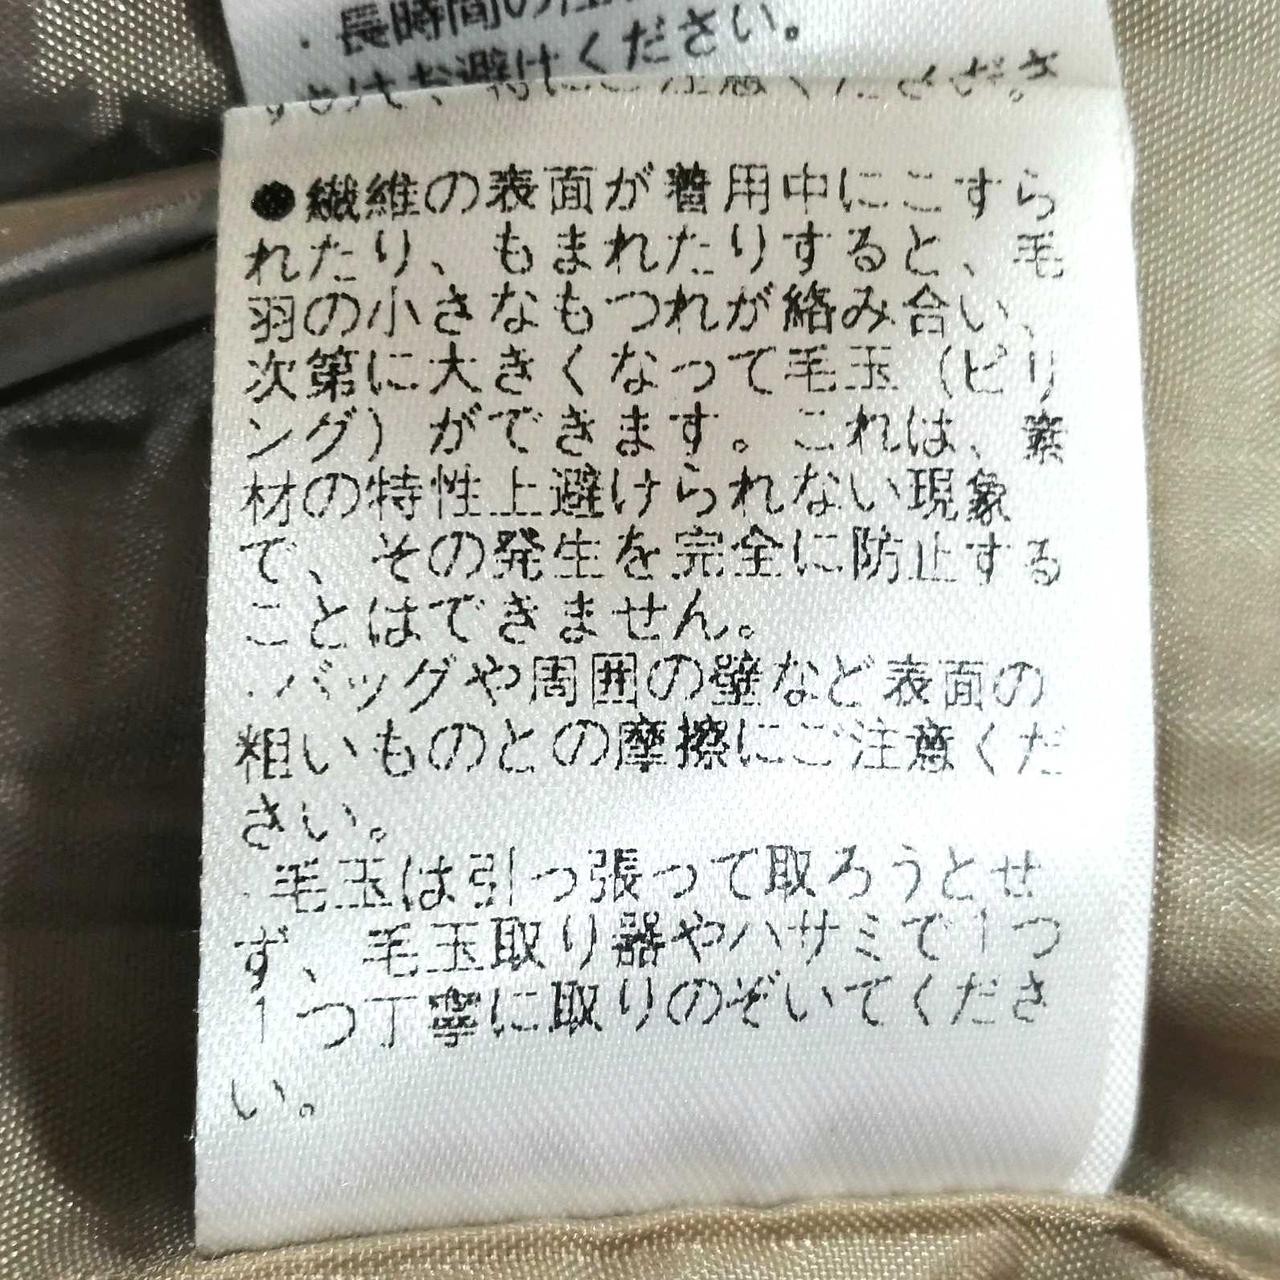 ・長時間の
すのはお避けください。
ご注意ください。
●繊維の表面が着用中にこすら
れたり、もまれたりすると、毛
羽の小さなもつれが絡み合い、
次第に大きくなって毛玉（ピリ
ング）ができます。これは、素
材の特性上避けられない現象
で、その発生を完全に防止する
ことはできません。
・バッグや周囲の壁など表面の
粗いものとの摩擦にご注意くだ
さい。
・毛玉は引っ張って取ろうとせ
ず、毛玉取り器やハサミで1つ
1つ丁寧に取りのぞいてくださ
い。